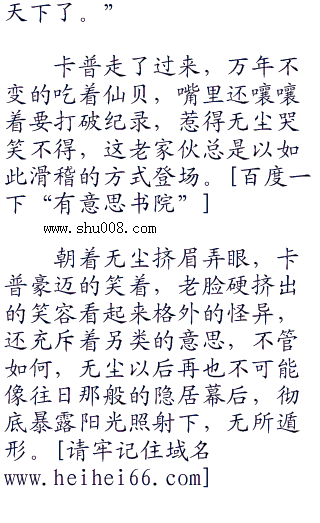 天下了。”
卡普走了过来，万年不
变的吃着仙贝，嘴里还嚷嚷
着要打破纪录，惹得无尘哭
笑不得，这老家伙总是以如
此滑稽的方式登场。[百度一
下“有意思书院”]
www.shu008.com
朝着无尘挤眉弄眼，卡
普豪迈的笑着，老脸硬挤出
的笑容看起来格外的怪异，
还充斥着另类的意思，不管
如何，无尘以后再也不可能
像往日那般的隐居幕后，彻
底暴露阳光照射下，无所遁
形。[请牢记住域名
www.heihei66.com]